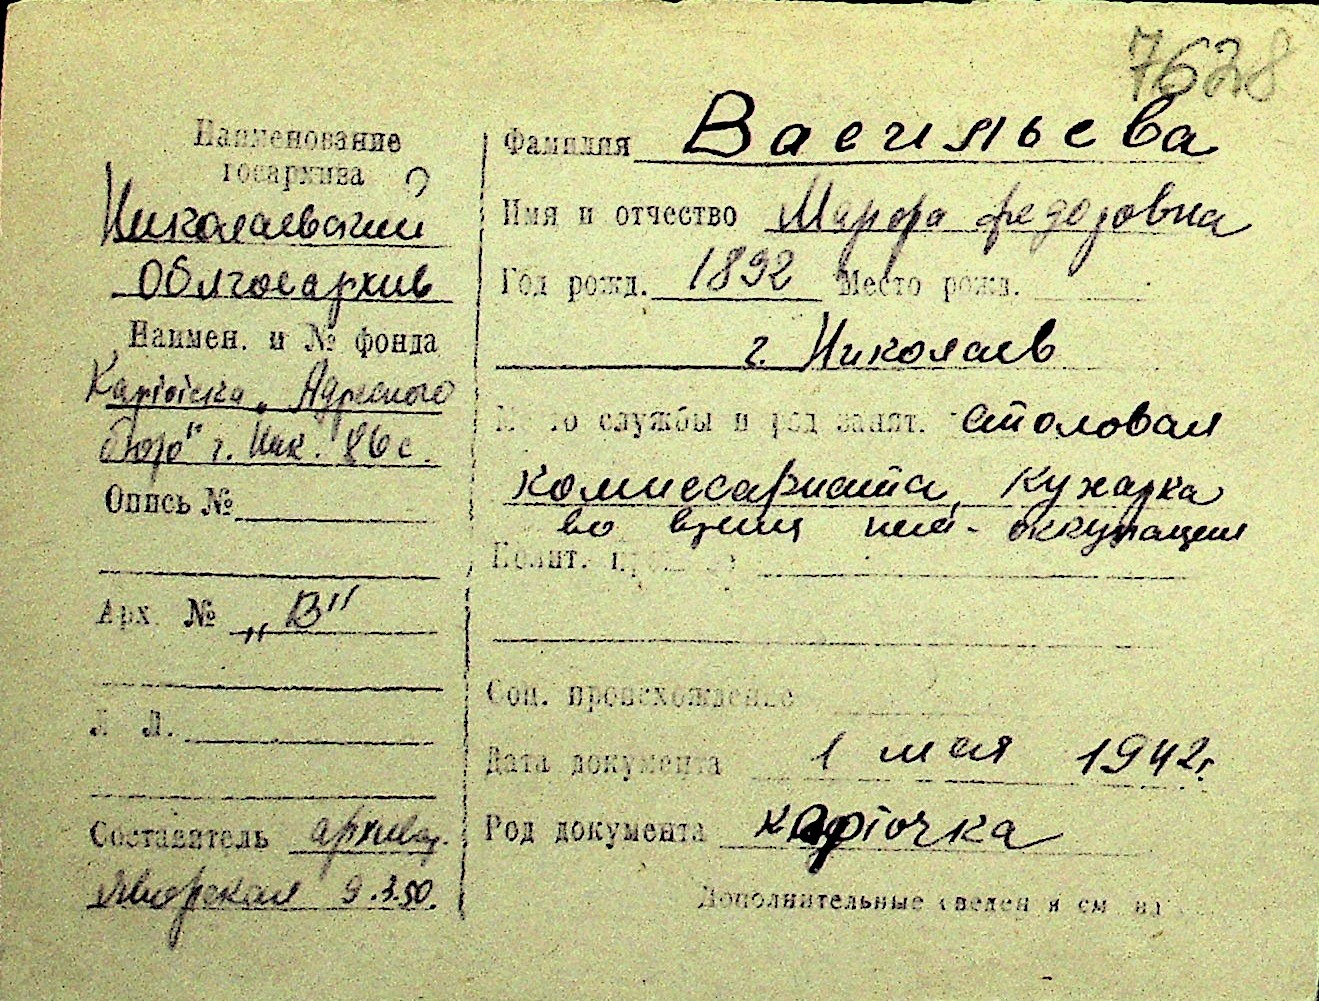 7628
Наименование
госархива
Николаевский
Облгосархив
Наимен. и № фонда
Картотека „Адресного
бюро" г. Ник.
Опись №
Арх. № „В"
Л Л.
Составитель архивар.
Яворская 9.3.50.
Фамилия Васильева
Имя и отчество Марфа Федоровна
Год рожд. 1892 Место рожд.
г. Николаев
Место службы и род занят. столовая
комиссариата, кухарка
во время нем. оккупации
Полит.
Соц. происхождение
Дата документа 1 мая 1942г.
Род документа карточка
Дополнительные сведен я см на